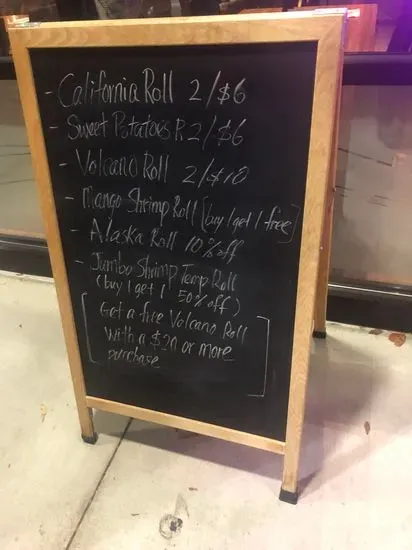 - California Roll 2/$6
- Sweet Potatoes R. 2/$6
- Volcano Roll 2/$10
- Mango Shrimp Roll [buy 1 get 1 free]
- Alaska Roll 10% off
- Jumbo Shrimp Temp Roll
(buy 1 get 1 50% off)
[Get a free Volcano Roll
With a $20 or more
purchase]